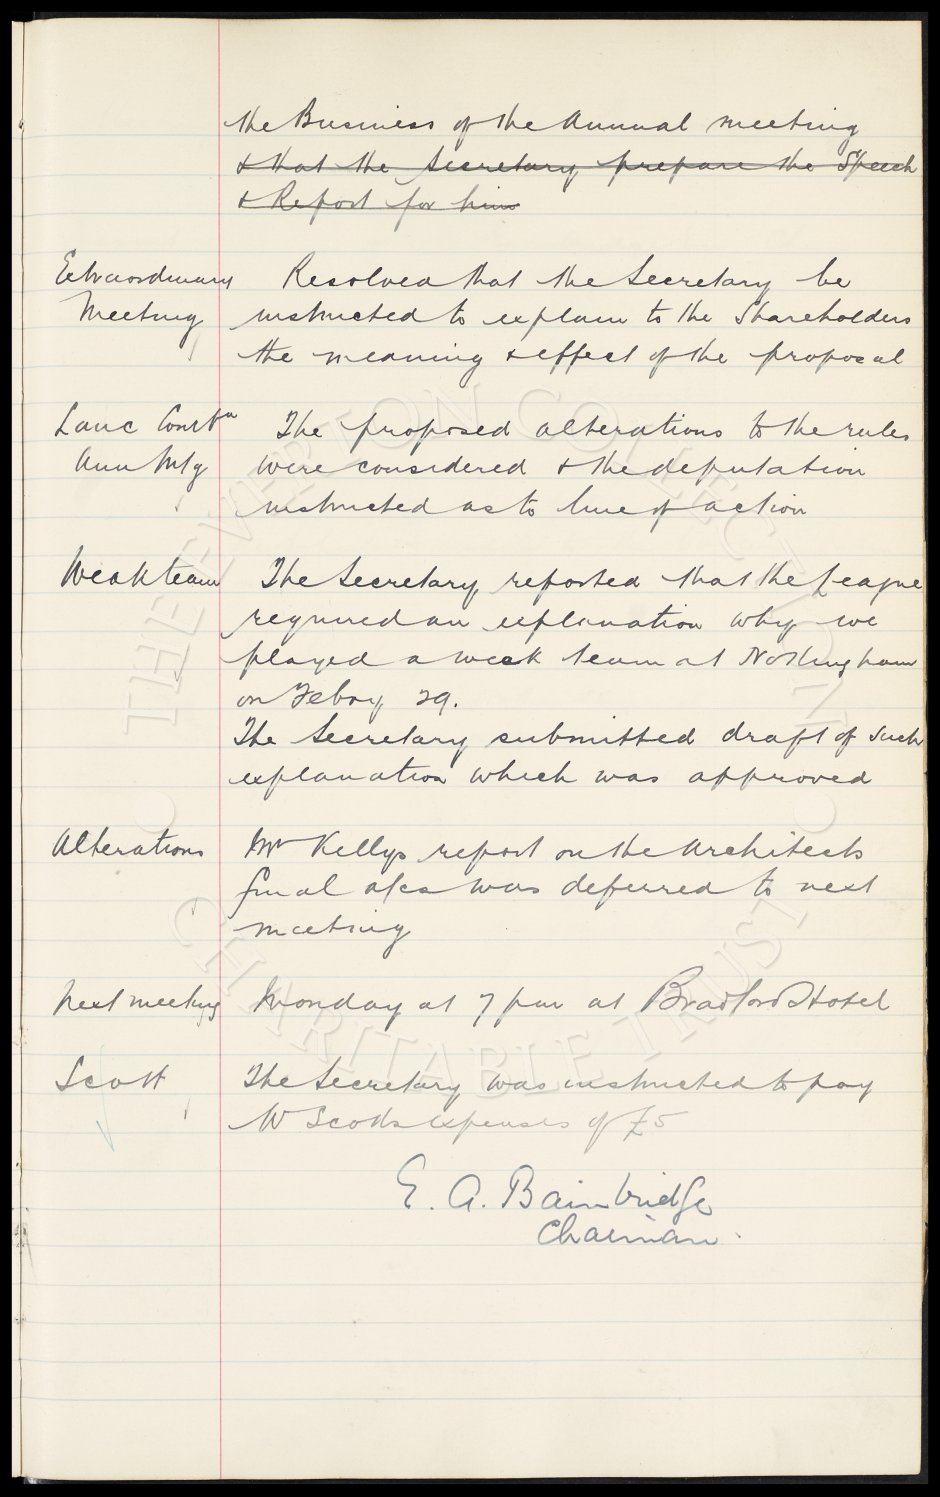 the Business of the Annual meeting
& that the Secretary prepare the Speech
& Report for him
Extraordinary Resolved that the Secretary be
Meeting instructed to explain to the Shareholders
the meaning & effect of the proposal
Lanc Combn The proposed alterations to the rules
Ann Mtg were considered & the deputation
instructed as to line of action
Weak team The Secretary reported that the League
required an explanation why we
played a weak team at Nottingham
on Febry 29.
The Secretary submitted draft of such
explanation which was approved
Alterations Mr Kellys report on the Architects
final a/cs was deferred to next
meeting
Next meeting Monday at 7 pm at Bradford Hotel
Scott The Secretary was instructed to pay
W Scotts expenses of £5
E. A. Bainbridge
Chairman.
THE EVERTON COLLECTION
CHARITABLE TRUST